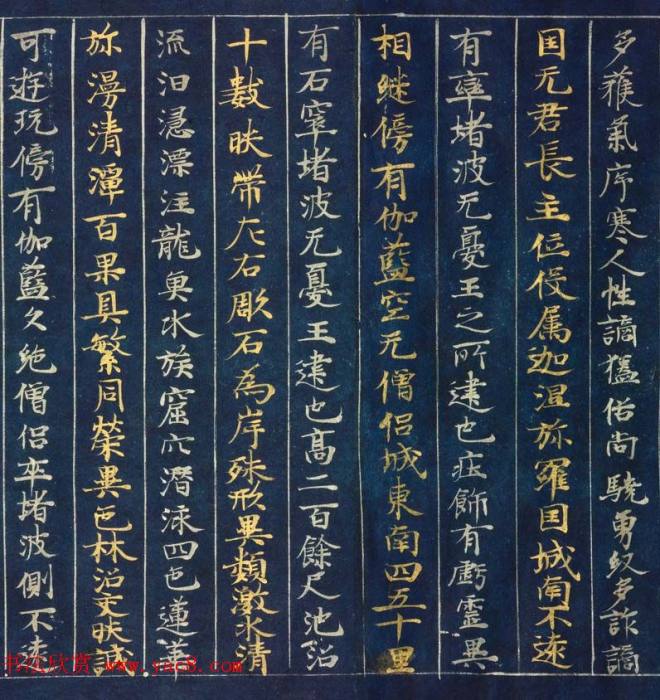 多蘋氣序寒人性譎猛俗尚驍勇紋多詐譎
国无君長主位役属迦湿弥羅国城南不遠
有窣堵波无憂王之所建也庄飾有虧靈異
相継傍有伽藍空无僧侣城東南四五十里
有石窣堵波无憂王建也高二百餘尺池沼
十數映帶左右彫石為岸殊形異類激水清
流汩淴漂注龍魚水族窟穴潜泳四色蓮華
弥漫清潭百果具繁同榮異色林沼交映誠
可遊玩傍有伽藍久絶僧侣窣堵波側不遠
书法欣赏 www.yac8.com